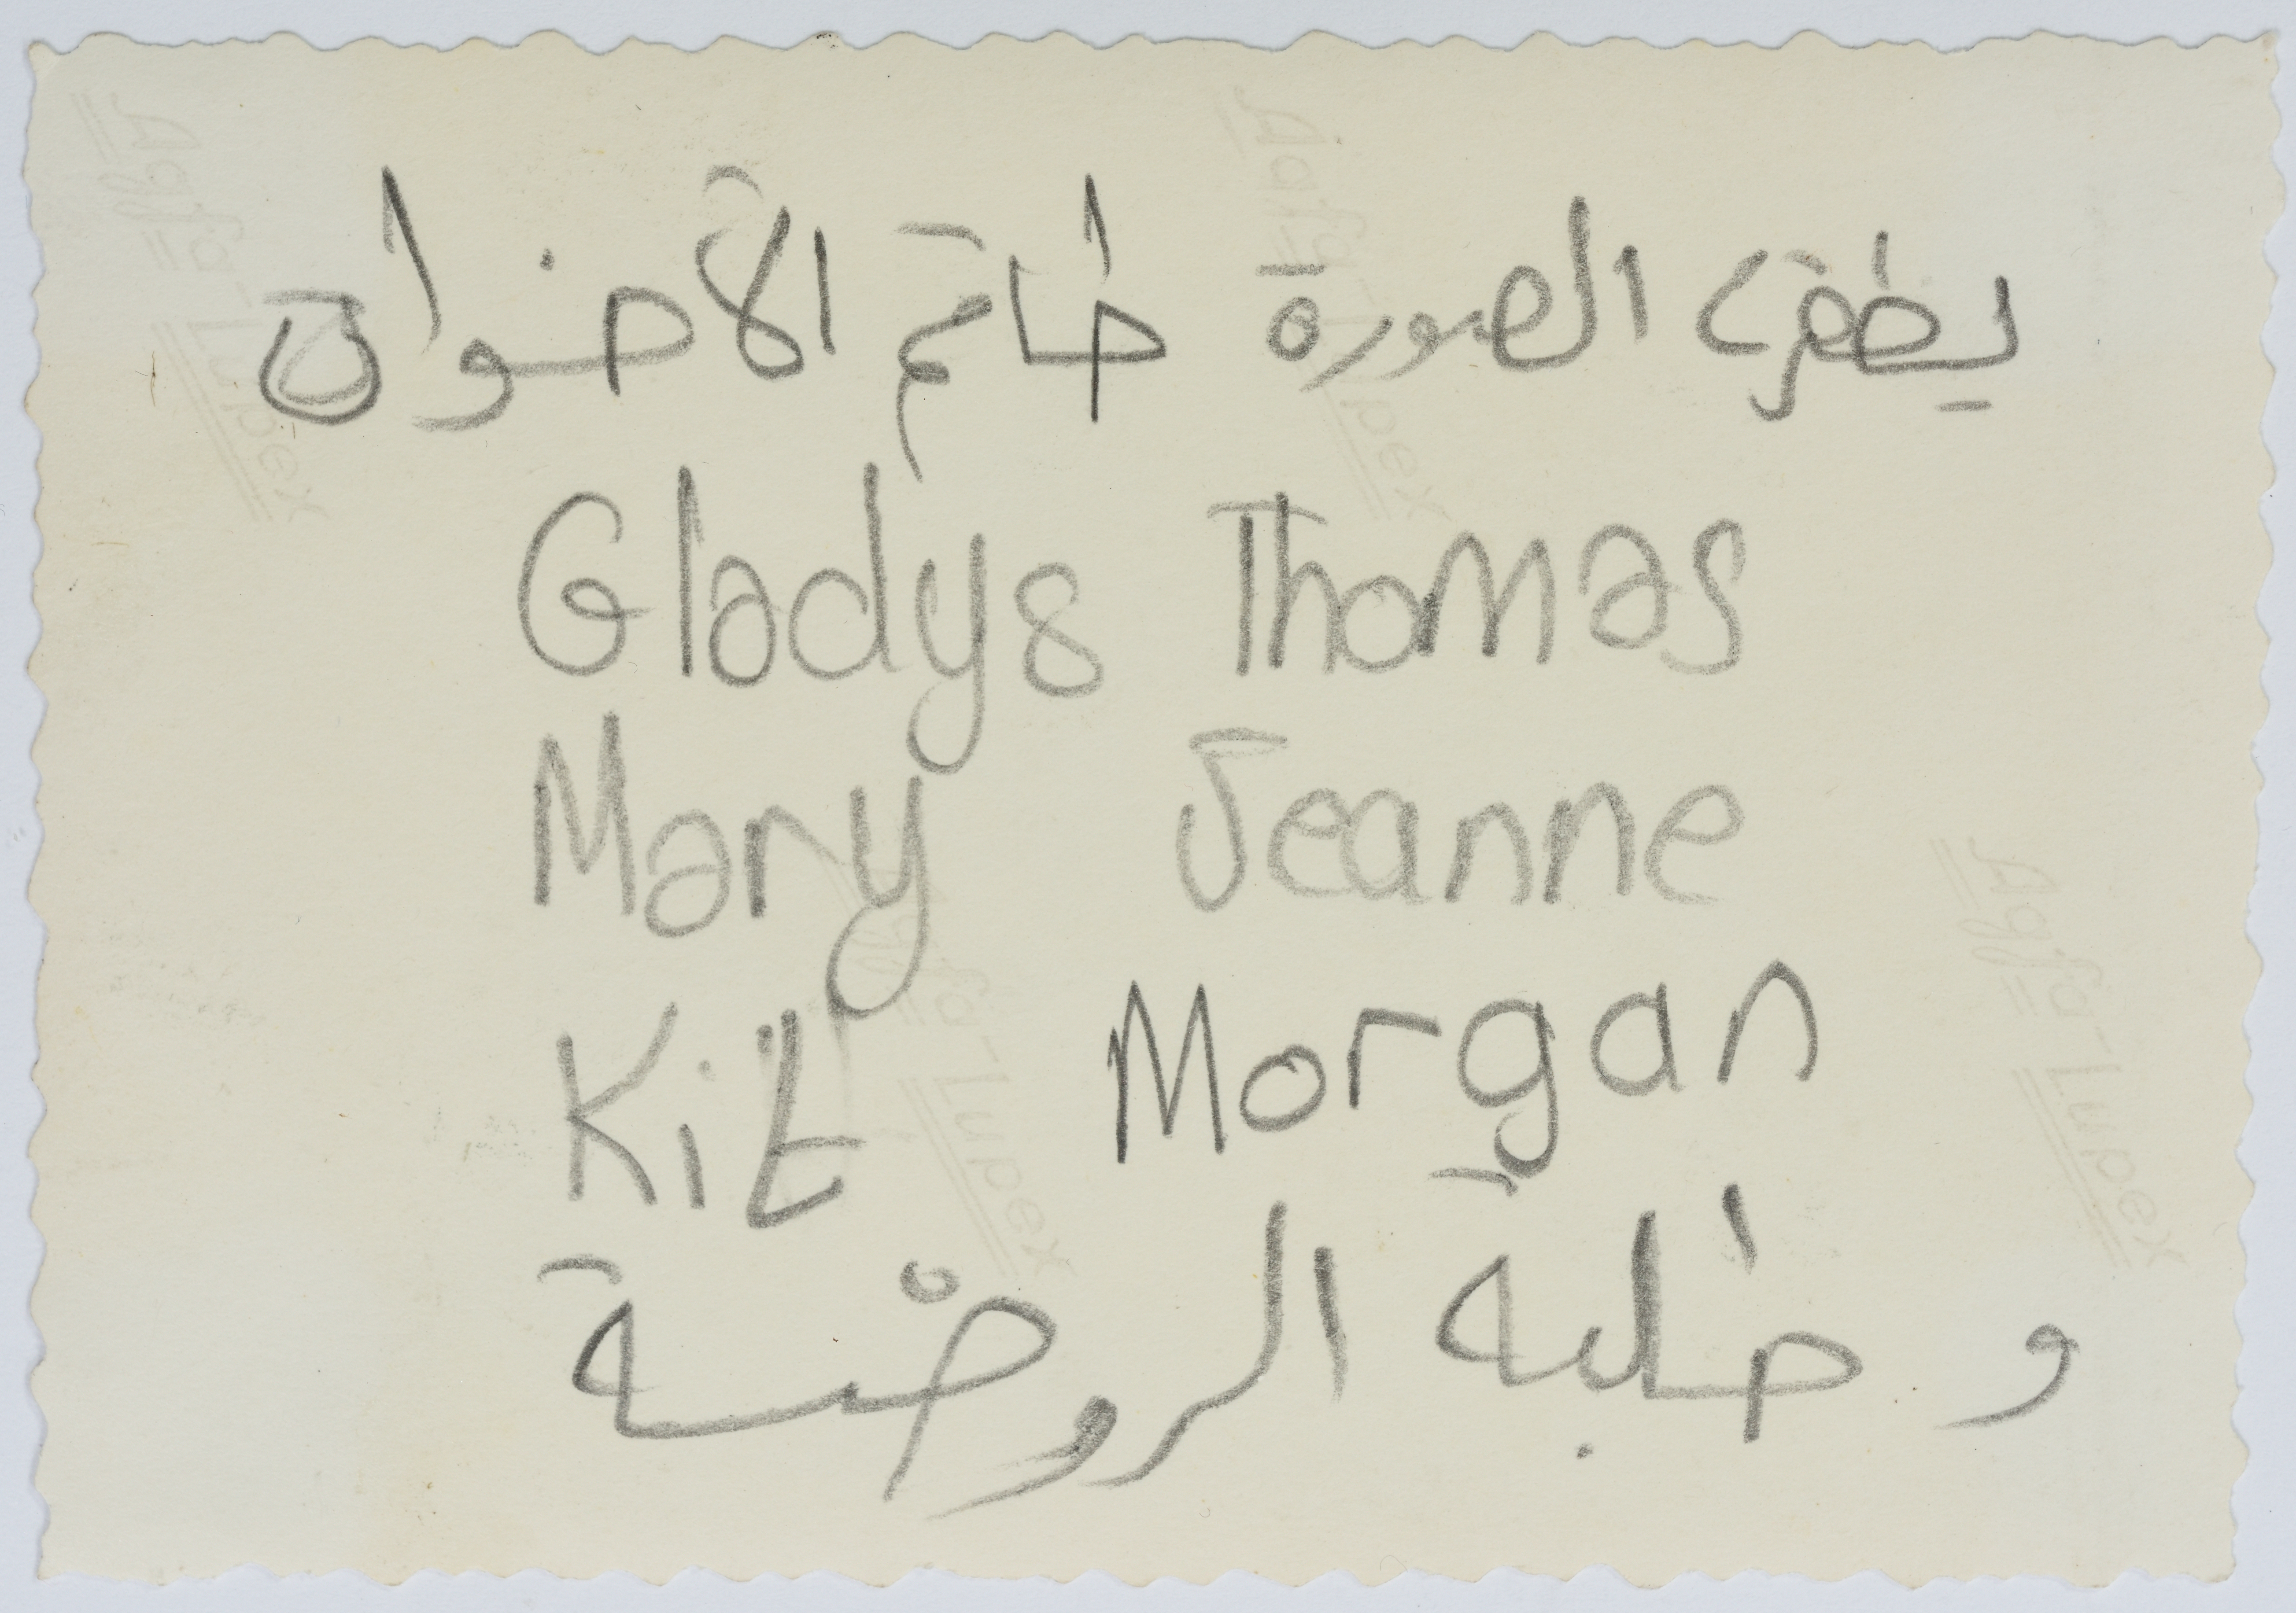 الصورة طاقم الاخوات
Gladys Thomas
Mary Jeanne
Kit Morgan
و طلبة الروضة
Agfa-Lupex
Agfa-Lupex
Agfa-Lupex
Agfa-Lupex